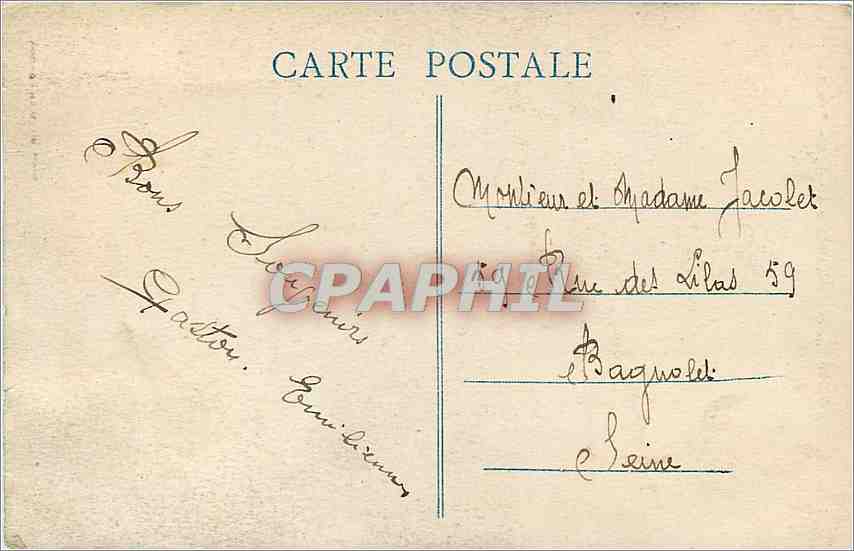 CARTE POSTALE
Bons
Souvenirs
Gaston. Emilienne
Monsieur et Madame Jacolet
59 Rue des Lilas 59
Bagnolet
Seine
CPAPHIL